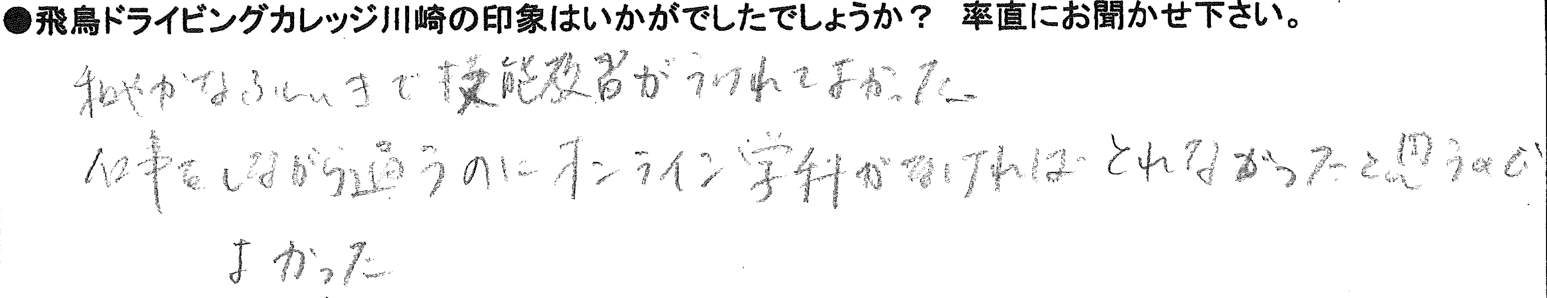 ●飛鳥ドライビングカレッジ川崎の印象はいかがでしたでしょうか？ 率直にお聞かせ下さい。
和やかなふんいきで技能教習がうけれてよかった
仕事をしながら通うのにオンライン学科がなければとれなかったと思うので
よかった